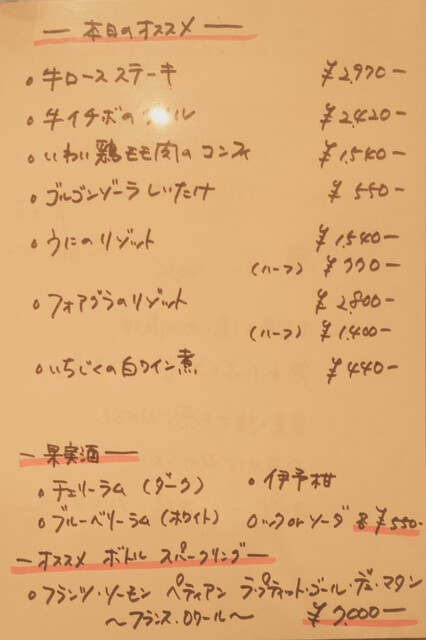 本日のオススメ
牛ロースステーキ ¥2,970-
牛イチボの ル ¥2,420-
いわい鶏モモ肉のコンフィ ¥1,540-
ゴルゴンゾーラしいたけ ¥550-
うにのリゾット ¥1,540-
(ハーフ) ¥770-
フォアグラのリゾット ¥2,800-
(ハーフ) ¥1,400-
いちじくの白ワイン煮 ¥440-
果実酒
チェリーラム (ダーク) 伊予柑
ブルーベリーラム (ホワイト) ロック or ソーダ 各¥550-
オススメ ボトル スパークリング
フランツ・ソーモン ペティアン ラ・プティット・ゴール・デュ・マタン
〜フランス・ロワール〜 ¥7,000-